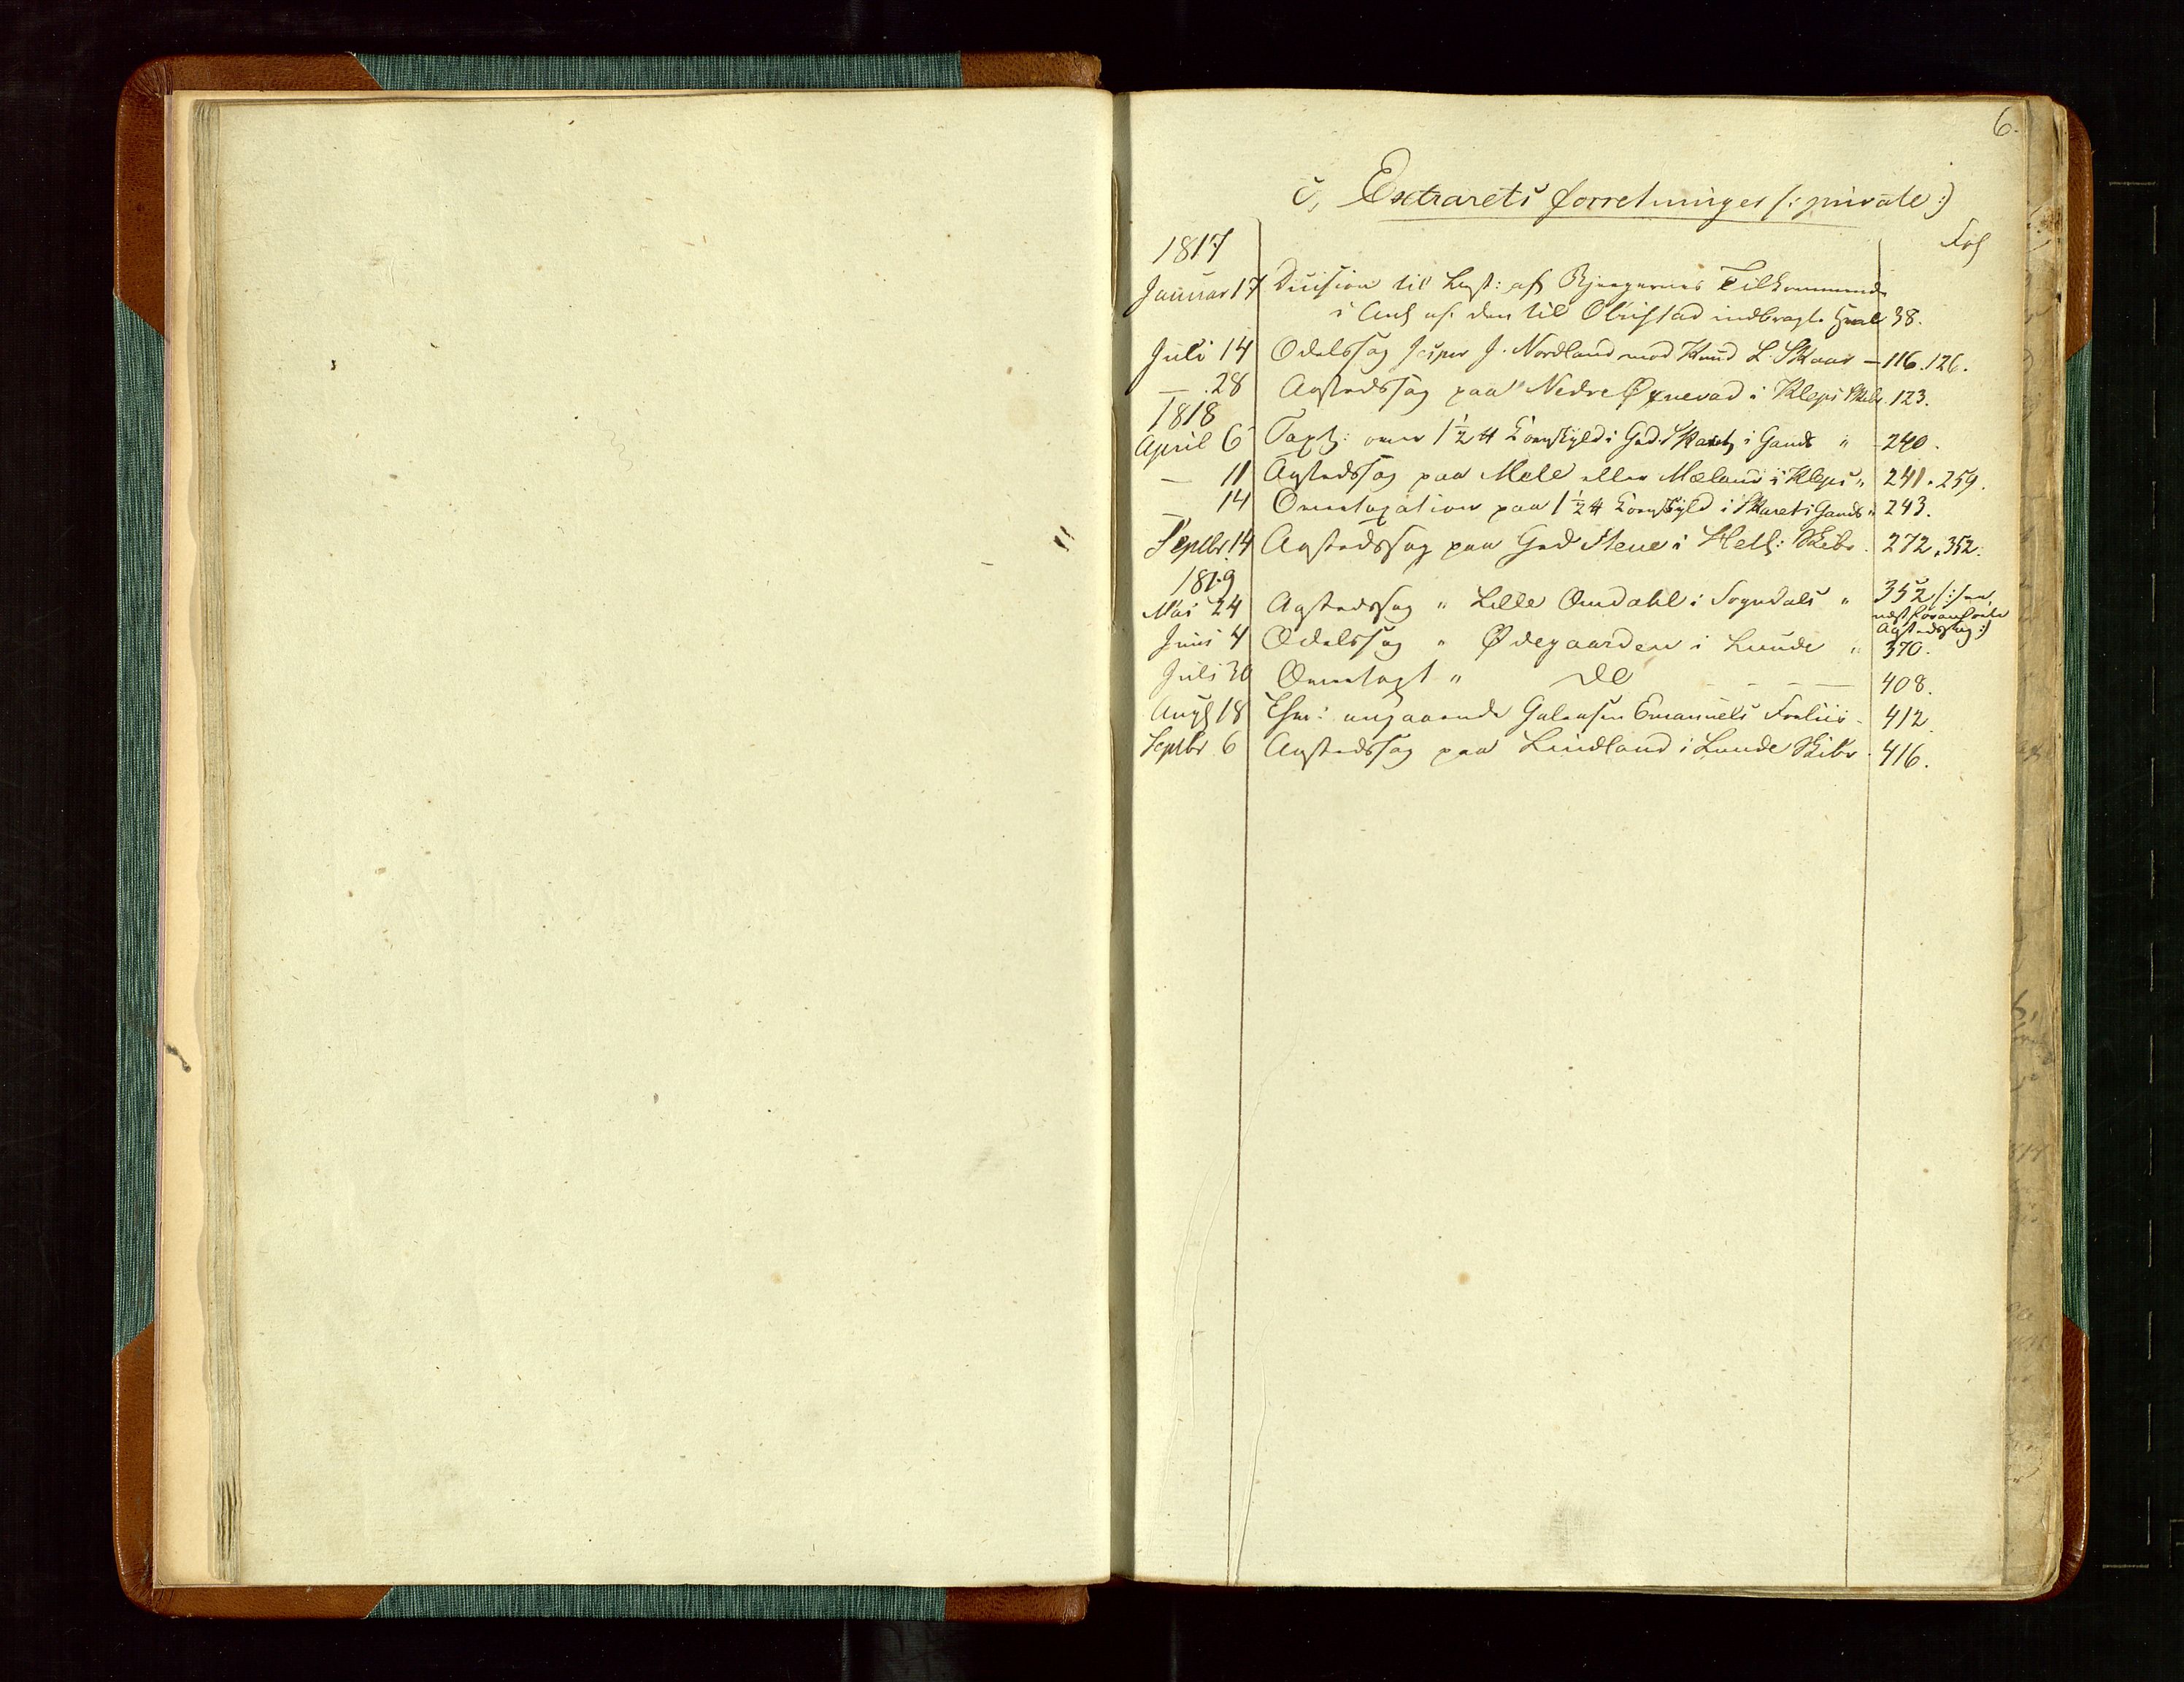 6.
c, Extrarets forretninger /: private :/
Fol
1817
Januar 17 Decision til Best: af Bjergernes Tilkommende
i Anl af den til Obristad indbragte Hval 38.
Juli 14 Odelssag Jesper J. Nordland mod Knud L. Skaar — 116. 126.
— 28 Aastedssag paa Nedre Øxnevad i Kleps Skibr. 123.
1818
April 6 Taxt: over 1½ # Kornskyld i Grd. i Gands " 240.
— 11 Aastedssag paa Mele eller Mæland i Kleps " 241. 259.
— 14 Omtaxation paa 1½ # Kornskyld i Skaret i Gands " 243.
Septbr. 14 Aastedssag paa Grd Stene i Hetl: Skibr. 272, 352.
1819
Mai 24 Aastedssag " Lille Omdahl i Sogndals " 352 /: see
næstforanførte
Aastedssag :/
Juni 4 Odelssag " Ødegaarden i Lunde " 370.
Juli 30 Omtaxt " do — — — — 408.
Augl 18 angaaende Galeasen Emanuels Forliis - 412.
Septbr 6 Aastedssag paa Lindland i Lunde Skibr. 416.